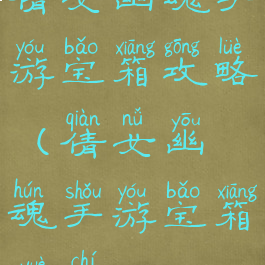 倩女幽魂手
yóu bǎo xiāng gōng lüè
游宝箱攻略
qiàn nǚ yōu
(倩女幽
hún shǒu yóu bǎo xiāng
魂手游宝箱
chí